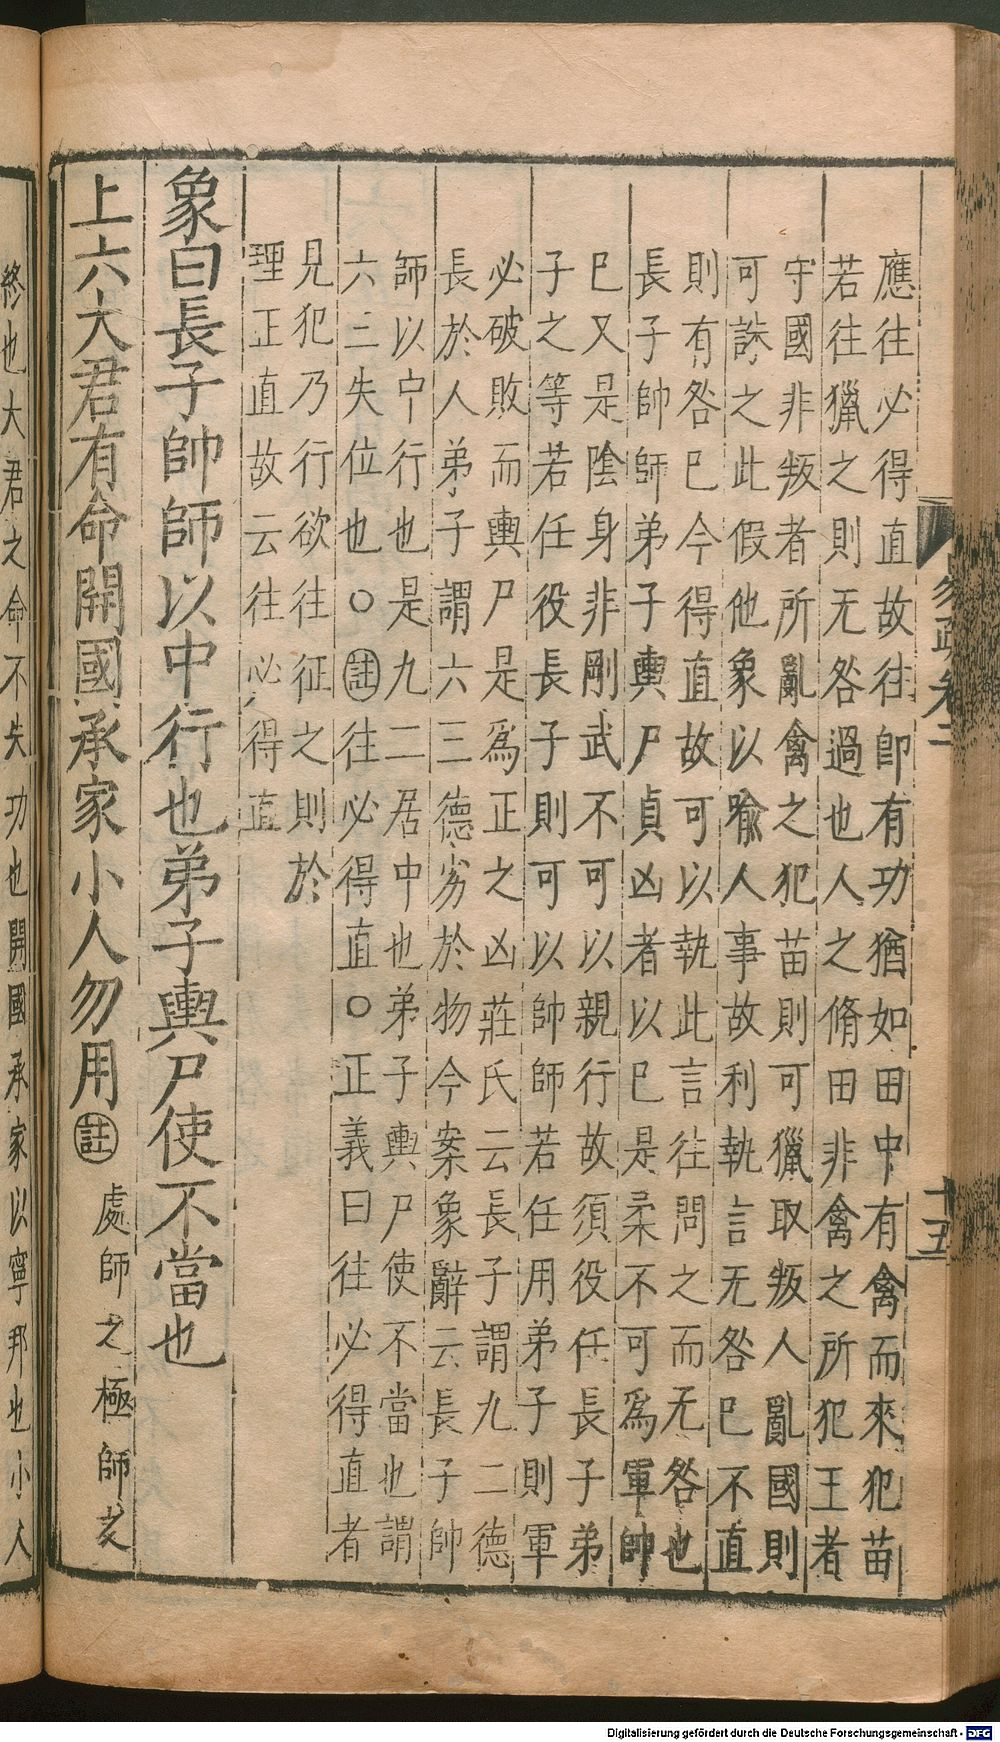 應往必得直故往即有功猶如田中有禽而來犯苗
若往獵之則无咎過也人之脩田非禽之所犯王者
守國非叛者所亂禽之犯苗則可獵取叛人亂國則
可誅之此假他象以喻人事故利執言无咎巳不直
則有咎巳今得直故可以執此言往問之而无咎也
長子帥師弟子輿尸貞凶者以巳是柔不可爲軍帥
巳又是陰身非剛武不可以親行故須役任長子弟
子之等若任役長子則可以帥師若任用弟子則軍
必破敗而輿尸是爲正之凶莊氏云長子謂九二德
長於人弟子謂六三德劣於物今案象辭云長子帥
師以中行也是九二居中也弟子輿尸使不當也謂
六三失位也○註往必得直○正義曰往必得直者
見犯乃行欲往征之則於
理正直故云往必得直
象曰長子帥師以中行也弟子輿尸使不當也
上六大君有命開國承家小人勿用註處師之極師之
終也大君之命不失功也開國承家以寧邦也小人
易疏卷二
十五
Digitalisierung gefördert durch die Deutsche Forschungsgemeinschaft - DFG